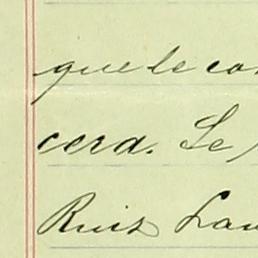 que le co
cerd. Se
Ruiz Lau